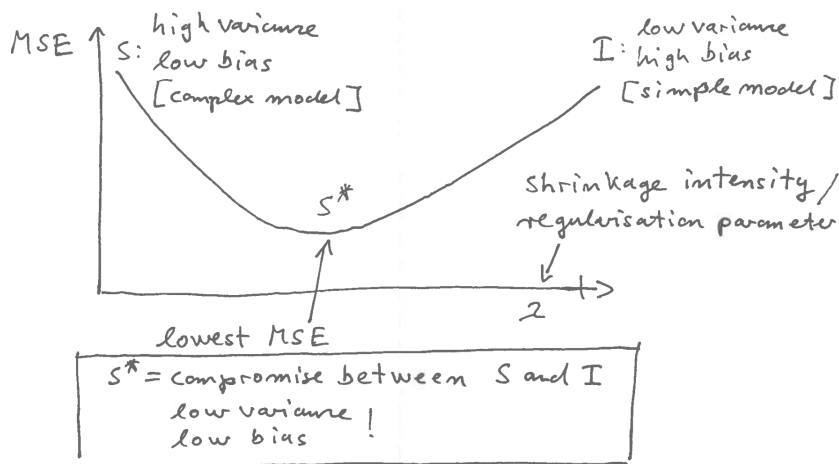 MSE
S: high variance
low bias
[complex model]
I: low variance
high bias
[simple model]
S*
Shrinkage intensity /
regularisation parameter
λ
lowest MSE
S* = compromise between S and I
low variance
low bias !